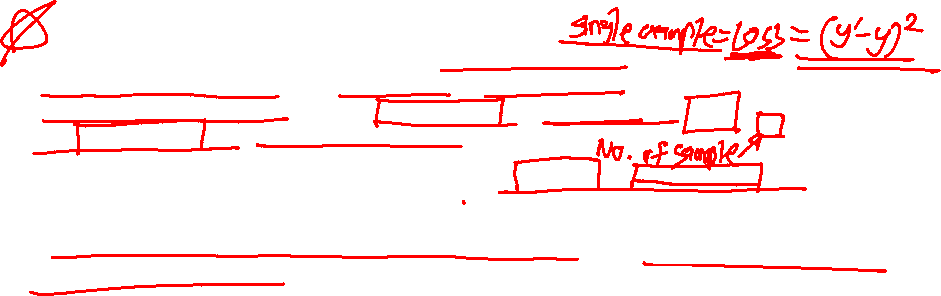 single example = Loss = (y'-y)²
No. of sample